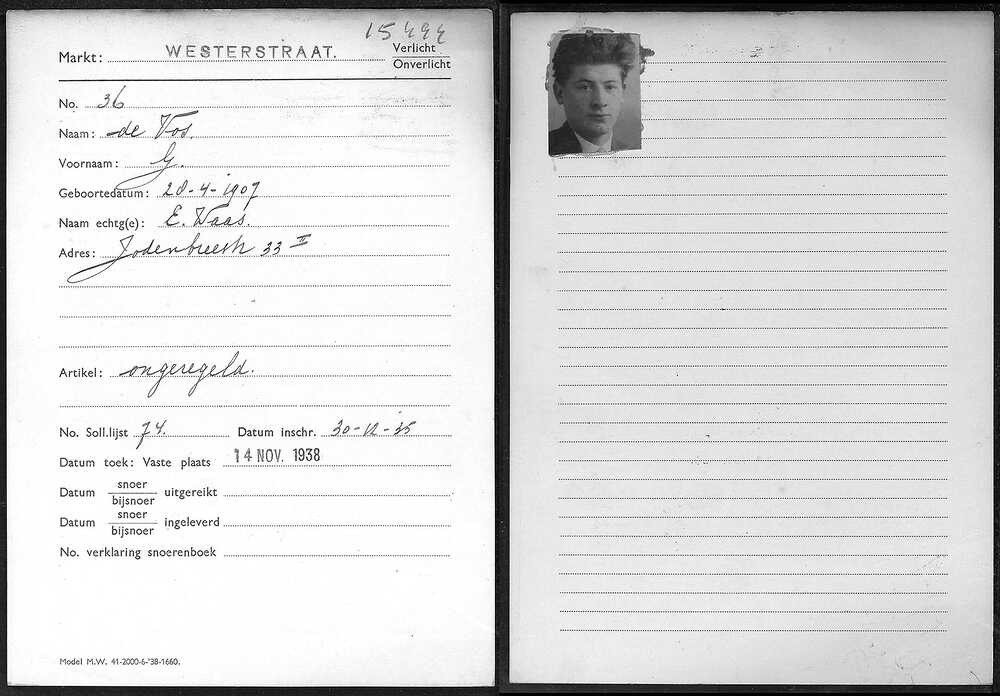 15494
Markt: WESTERSTRAAT. Verlicht
Onverlicht
No. 36
Naam: de Vos.
Voornaam: G.
Geboortedatum: 20-4-1907
Naam echtg(e): E. Waas.
Adres: Jodenbreestr 33 II
Artikel: ongeregeld.
No. Soll.lijst 74. Datum inschr. 30-12-35
Datum toek: Vaste plaats 14 NOV. 1938
Datum snoer
bijsnoer uitgereikt
Datum snoer
bijsnoer ingeleverd
No. verklaring snoerenboek
Model M.W. 41-2000-6-'38-1660.